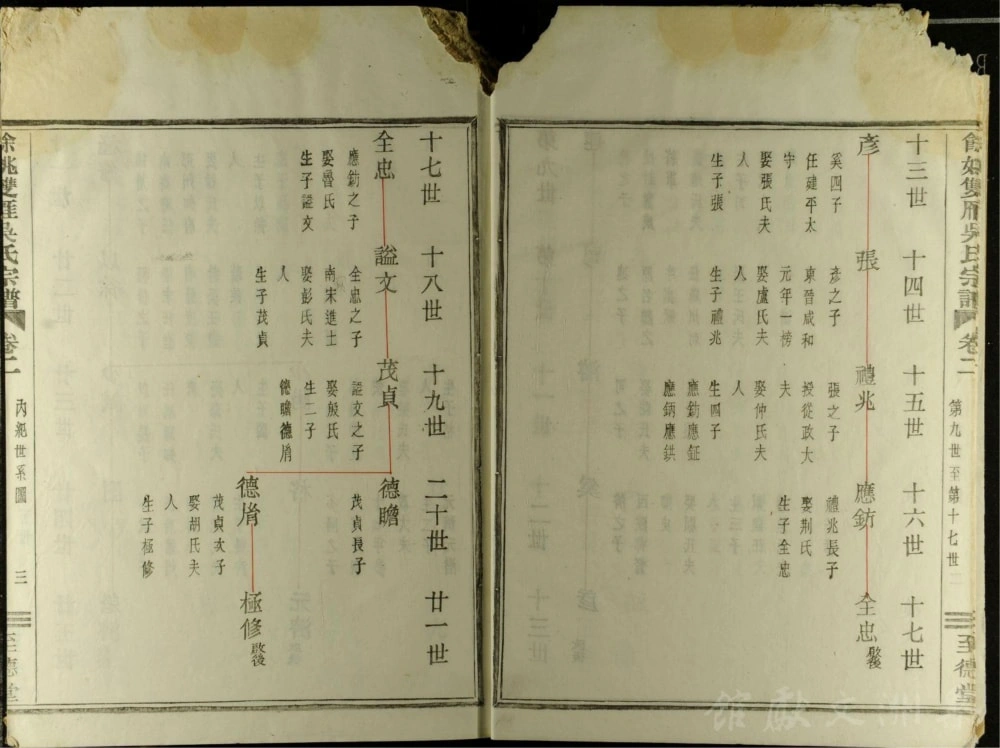 餘姚雙雁吳氏宗譜
卷二
第九世至第十七世
二
至德堂
十三世
十四世
十五世
十六世
十七世
彥
奚四子
任建平太
守
娶張氏夫
人
生子張
張
彥之子
東晉咸和
元年一榜
娶盧氏夫
人
生子禮兆
禮兆
張之子
授從政大
夫
娶仲氏夫
人
生四子
應鈁應鉦
應鈵應鉷
應鈁
禮兆長子
娶荆氏
生子全忠
全忠
啟後
十七世
十八世
十九世
二十世
廿一世
全忠
應鈁之子
娶魯氏
生子謚文
謚文
全忠之子
南宋進士
娶彭氏夫
人
生子茂貞
茂貞
謚文之子
娶殷氏
生二子
德瞻德脩
德瞻
茂貞長子
德脩
茂貞次子
娶胡氏夫
人
生子極修
極修
啟後
餘姚雙雁吳氏宗譜
卷二
內紀世系圖
三
至德堂
文獻館